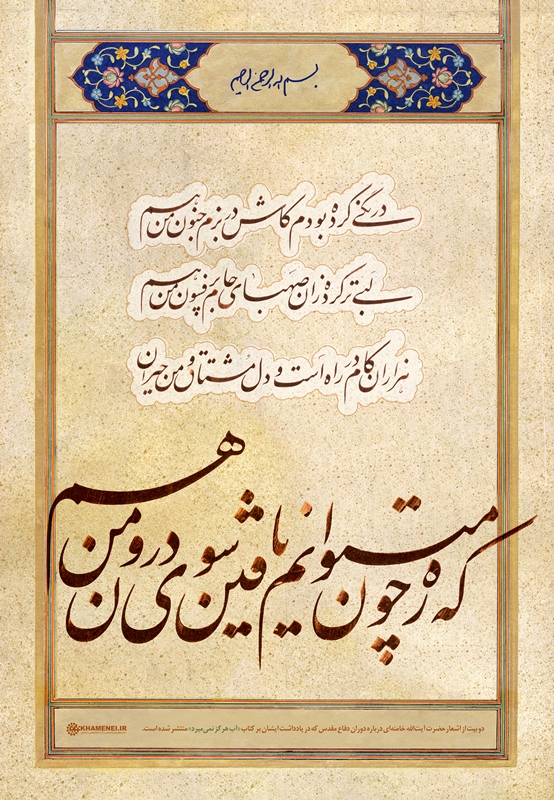 بسم الله الرحمن الرحیم
درنگی کرده بودم کاش در بزم جنون من هم
لبی تر کرده زان صهبای جام پرفسون من هم
هزاران کام در راه است و دل مشتاق و من حیران
که ره چون میتوانم یافتن سوی درون من هم
دو بیت از اشعار حضرت آیت‌الله خامنه‌ای درباره دوران دفاع مقدس که در یادداشت ایشان بر کتاب «آب هرگز نمی‌میرد» منتشر شده است.
KHAMENEI.IR